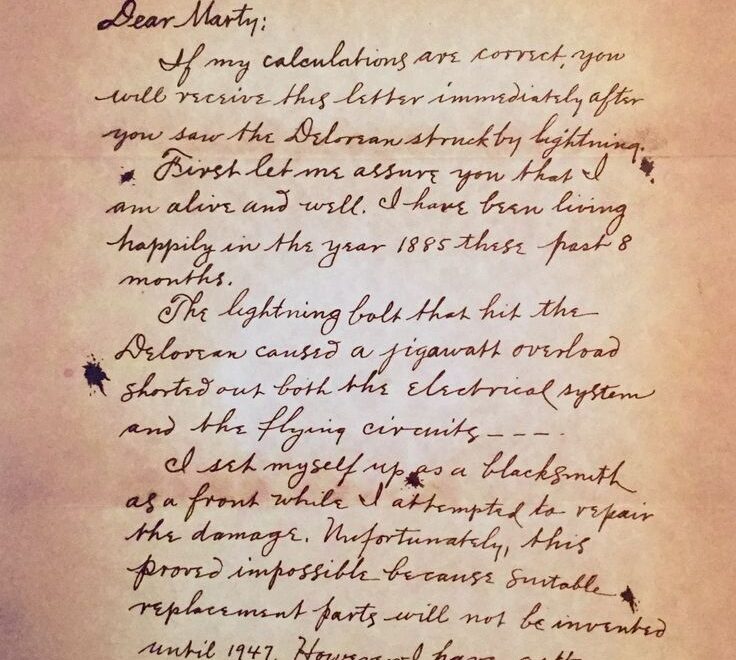 Dear Marty:
If my calculations are correct, you
will receive this letter immediately after
you saw the Delorean struck by lightning.
First let me assure you that I
am alive and well. I have been living
happily in the year 1885 these past 8
months.
The lightning bolt that hit the
Delorean caused a jigawatt overload
shorted out both the electrical system
and the flying circuits ----.
I set myself up as a blacksmith
as a front while I attempted to repair
the damage. Unfortunately, this
proved impossible because suitable
replacement parts will not be invented
until 1947. However I have